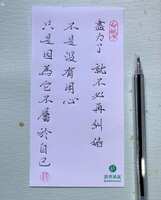 盡力了 就不必再糾結
不是沒有用心
只是因為它不屬於自己